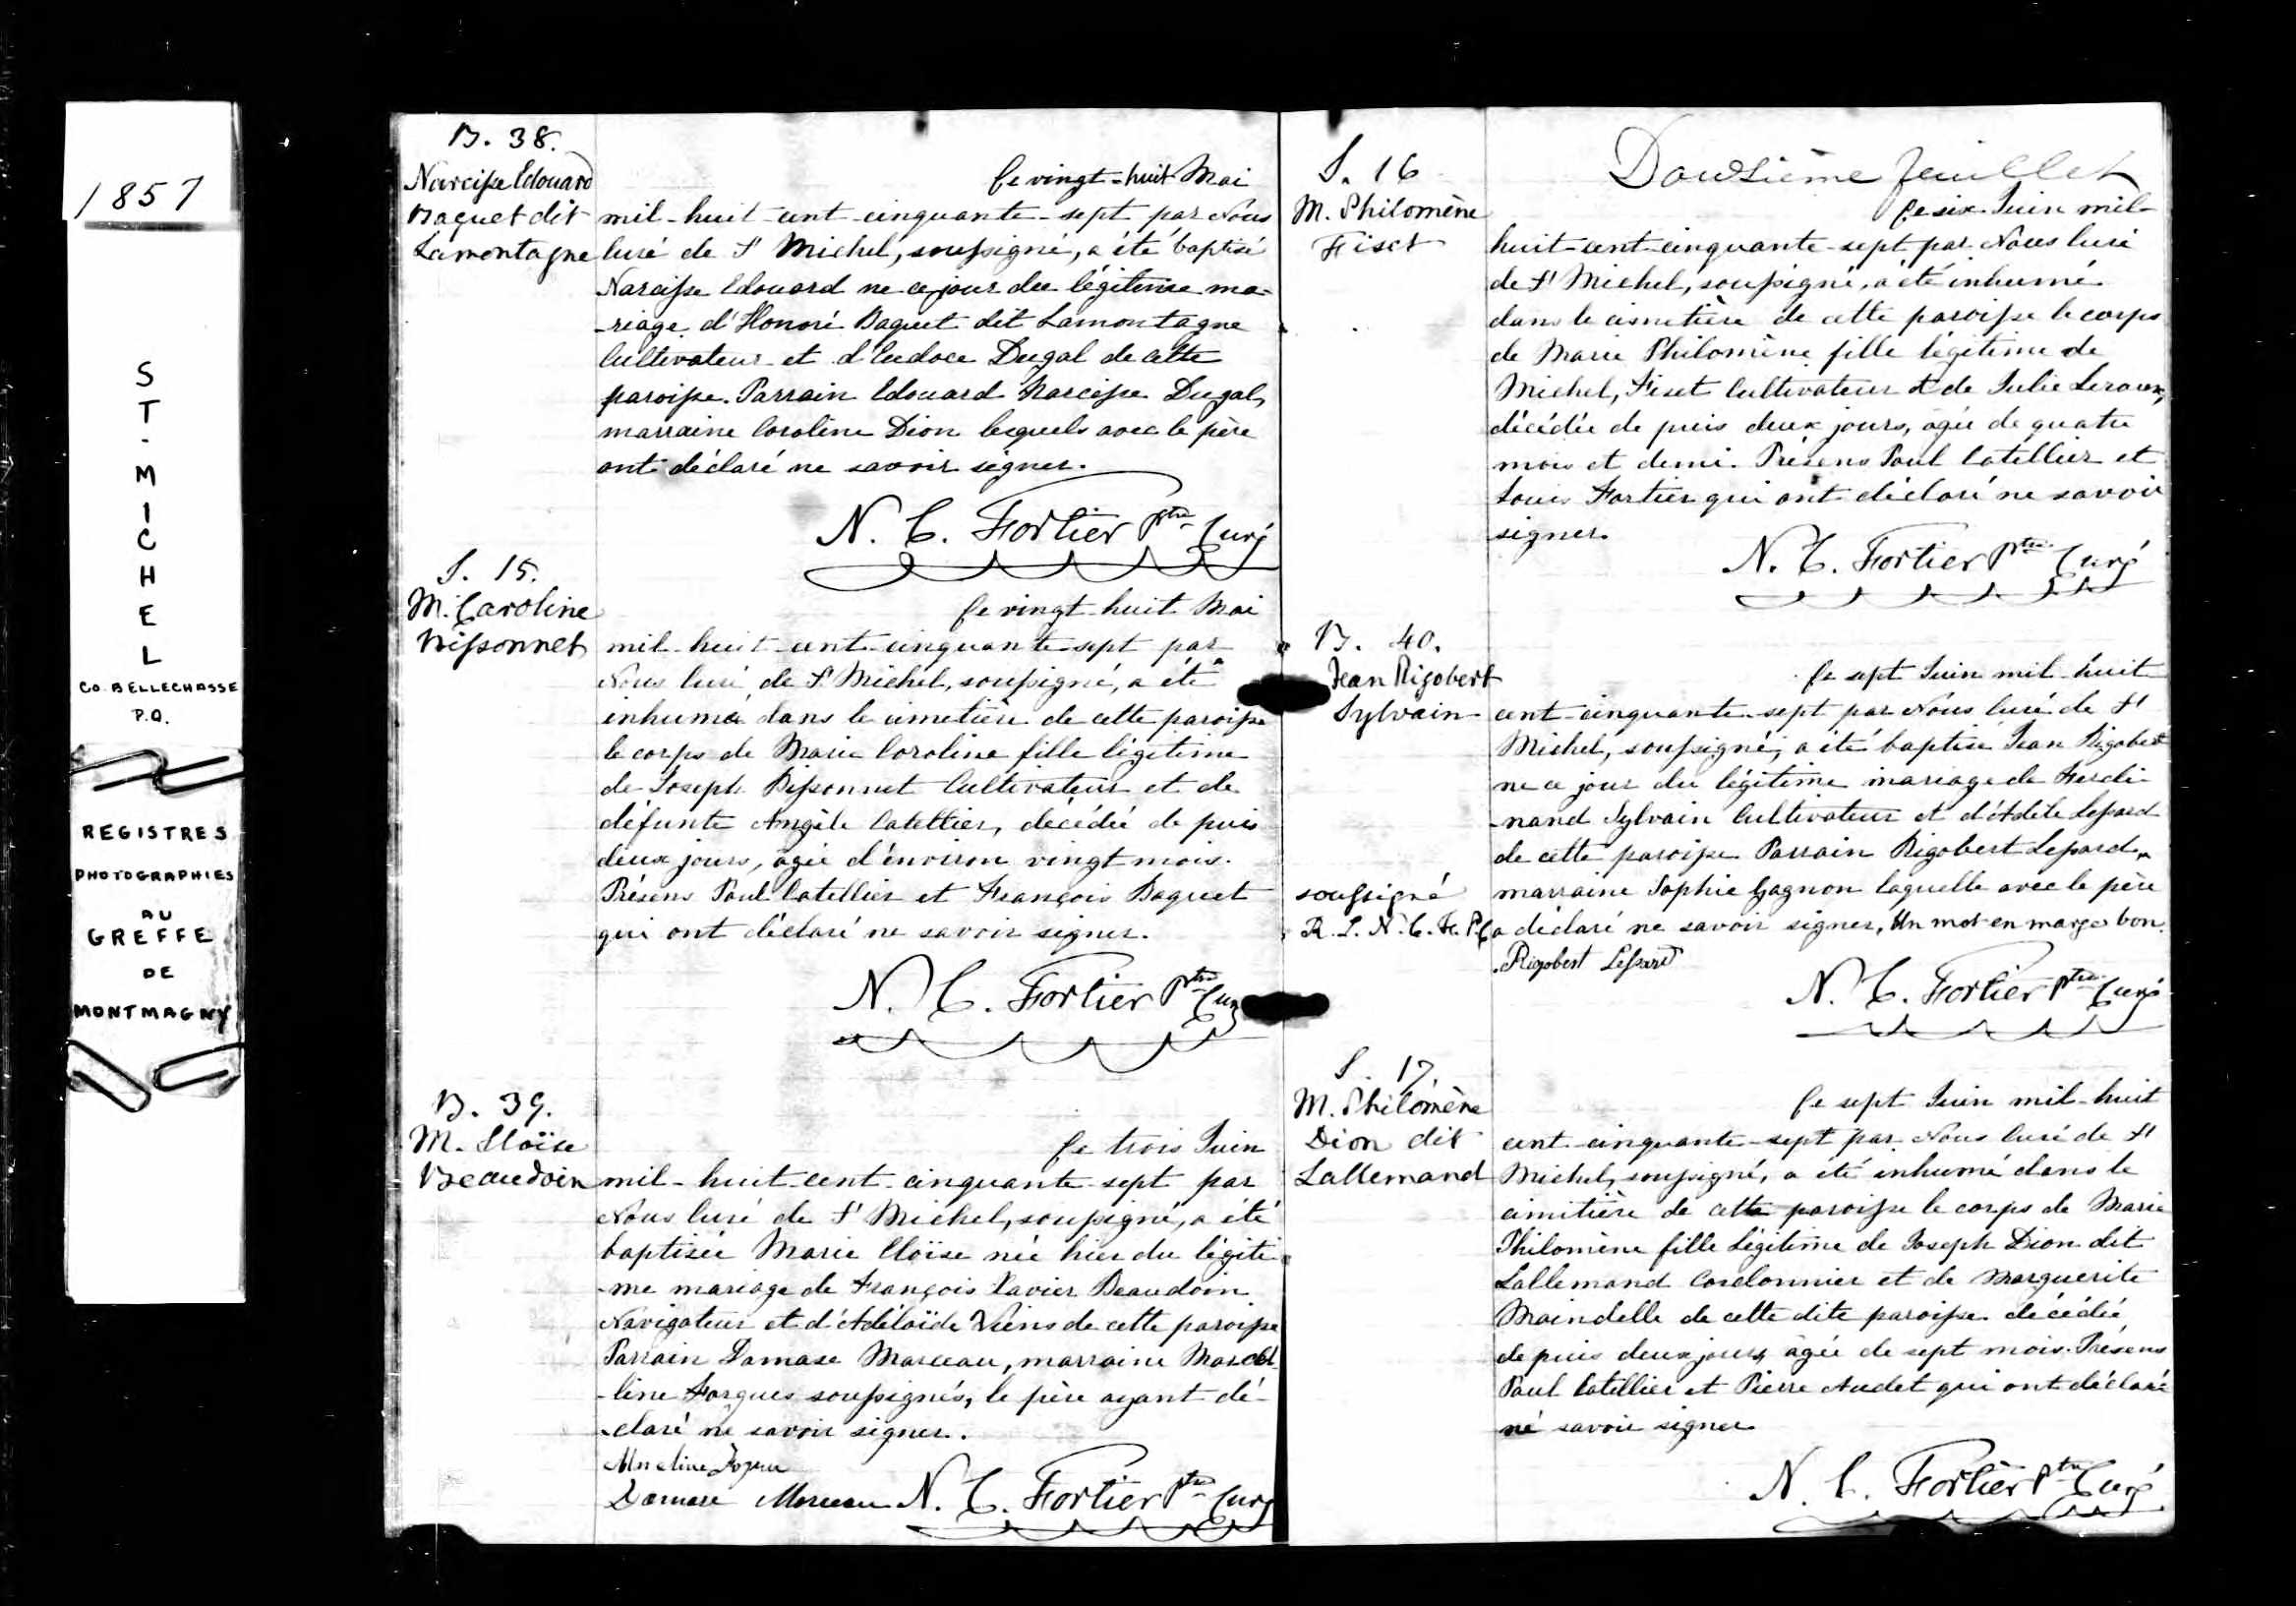 1857
ST-MICHEL
CO. BELLECHASSE
P.Q.
REGISTRES
PHOTOGRAPHIES
AU
GREFFE
DE
MONTMAGNY
B. 38.
Narcisse Edouard
Baquet dit
Lamontagne
Le vingt-huit Mai
mil-huit-cent-cinquante-sept par Nous
Curé de St Michel, soussigné, a été baptisé
Narcisse Edouard né ce jour du légitime ma-
-riage d'Honoré Baquet dit Lamontagne
Cultivateur et d'Eudoce Dugal de cette
paroisse. Parrain Edouard Narcisse Dugal,
marraine Caroline Dion lesquels avec le père
ont déclaré ne savoir signer.
N. C. Fortier Ptre Curé
S. 15.
M. Caroline
Bissonnet
Le vingt-huit Mai
mil-huit-cent-cinquante-sept par
Nous Curé de St Michel, soussigné, a été
inhumé dans le cimetière de cette paroisse
le corps de Marie Caroline fille légitime
de Joseph Bissonnet Cultivateur et de
défunte Angèle Catellier, décédée de puis
deux jours, âgée d'environ vingt mois.
Présens Paul Catellier et François Baquet
qui ont déclaré ne savoir signer.
N. C. Fortier Ptre Curé
B. 39.
M. Eloïse
Beaudoin
Le trois Juin
mil-huit-cent-cinquante-sept par
Nous Curé de St Michel, soussigné, a été
baptisée Marie Eloïse née hier du légiti-
-me mariage de François Xavier Beaudoin
Navigateur et d'Adélaïde Viens de cette paroisse
Parrain Damase Marceau, marraine Marcel-
-line Forgues soussignés, le père ayant dé-
-claré ne savoir signer.
Damase Marceau N. C. Fortier Ptre Curé
Douzième feuillet
S. 16
M. Philomène
Fiset
Le six Juin mil-
huit-cent-cinquante-sept par Nous Curé
de St Michel, soussigné, a été inhumé
dans le cimetière de cette paroisse le corps
de Marie Philomène fille légitime de
Michel, Fiset Cultivateur et de Julie Leroux,
décédée de puis deux jours, âgée de quatre
mois et demi. Présens Paul Catellier et
Louis Fortier qui ont déclaré ne savoir
signer.
N. C. Fortier Ptre Curé
B. 40.
Jean Rigobert
Sylvain
Le sept Juin mil-huit
cent-cinquante-sept par Nous Curé de St
Michel, soussigné, a été baptisé Jean Rigobert
né ce jour du légitime mariage de Ferdi-
-nand Sylvain Cultivateur et d'Adèle Lessard
de cette paroisse Parrain Rigobert Lessard,
marraine Sophie Gagnon laquelle avec le père
a déclaré ne savoir signer, Un mot en marge bon.
soussigné
R. L. N. C. F. P. C
Rigobert Lessard
N. C. Fortier Ptre Curé
S. 17.
M. Philomène
Dion dit
Lallemand
Le sept Juin mil-huit
cent-cinquante-sept par Nous Curé de St
Michel, soussigné, a été inhumé dans le
cimitière de cette paroisse le corps de Marie
Philomène fille Légitime de Joseph Dion dit
Lallemand Cordonnier et de Marguerite
Maindelle de cette dite paroisse décédée
de puis deux jours, âgée de sept mois. Présens
Paul Catellier et Pierre Audet qui ont déclaré
ne savoir signer
N. C. Fortier Ptre Curé